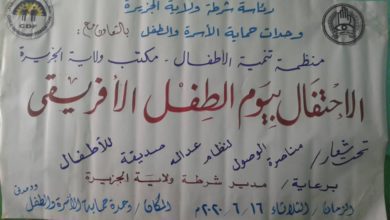 رئاسة شرطة ولاية الجزيرة
وحدات حماية الأسرة والطفل بالتعاون مع :
منظمة تنمية الأطفال - مكتب ولاية الجزيرة
الاحتفال بيوم الطفل الأفريقى
تحت شعار / مناصرة الوصول لنظام عدالة صديقة للأطفال
برعاية / مدير شرطة ولاية الجزيرة
الزمان / الثلاثاء ١٦ / ٦ / ٢٠٢٠م المكان / وحدة حماية الأسرة والطفل
ودمدنى
CDF